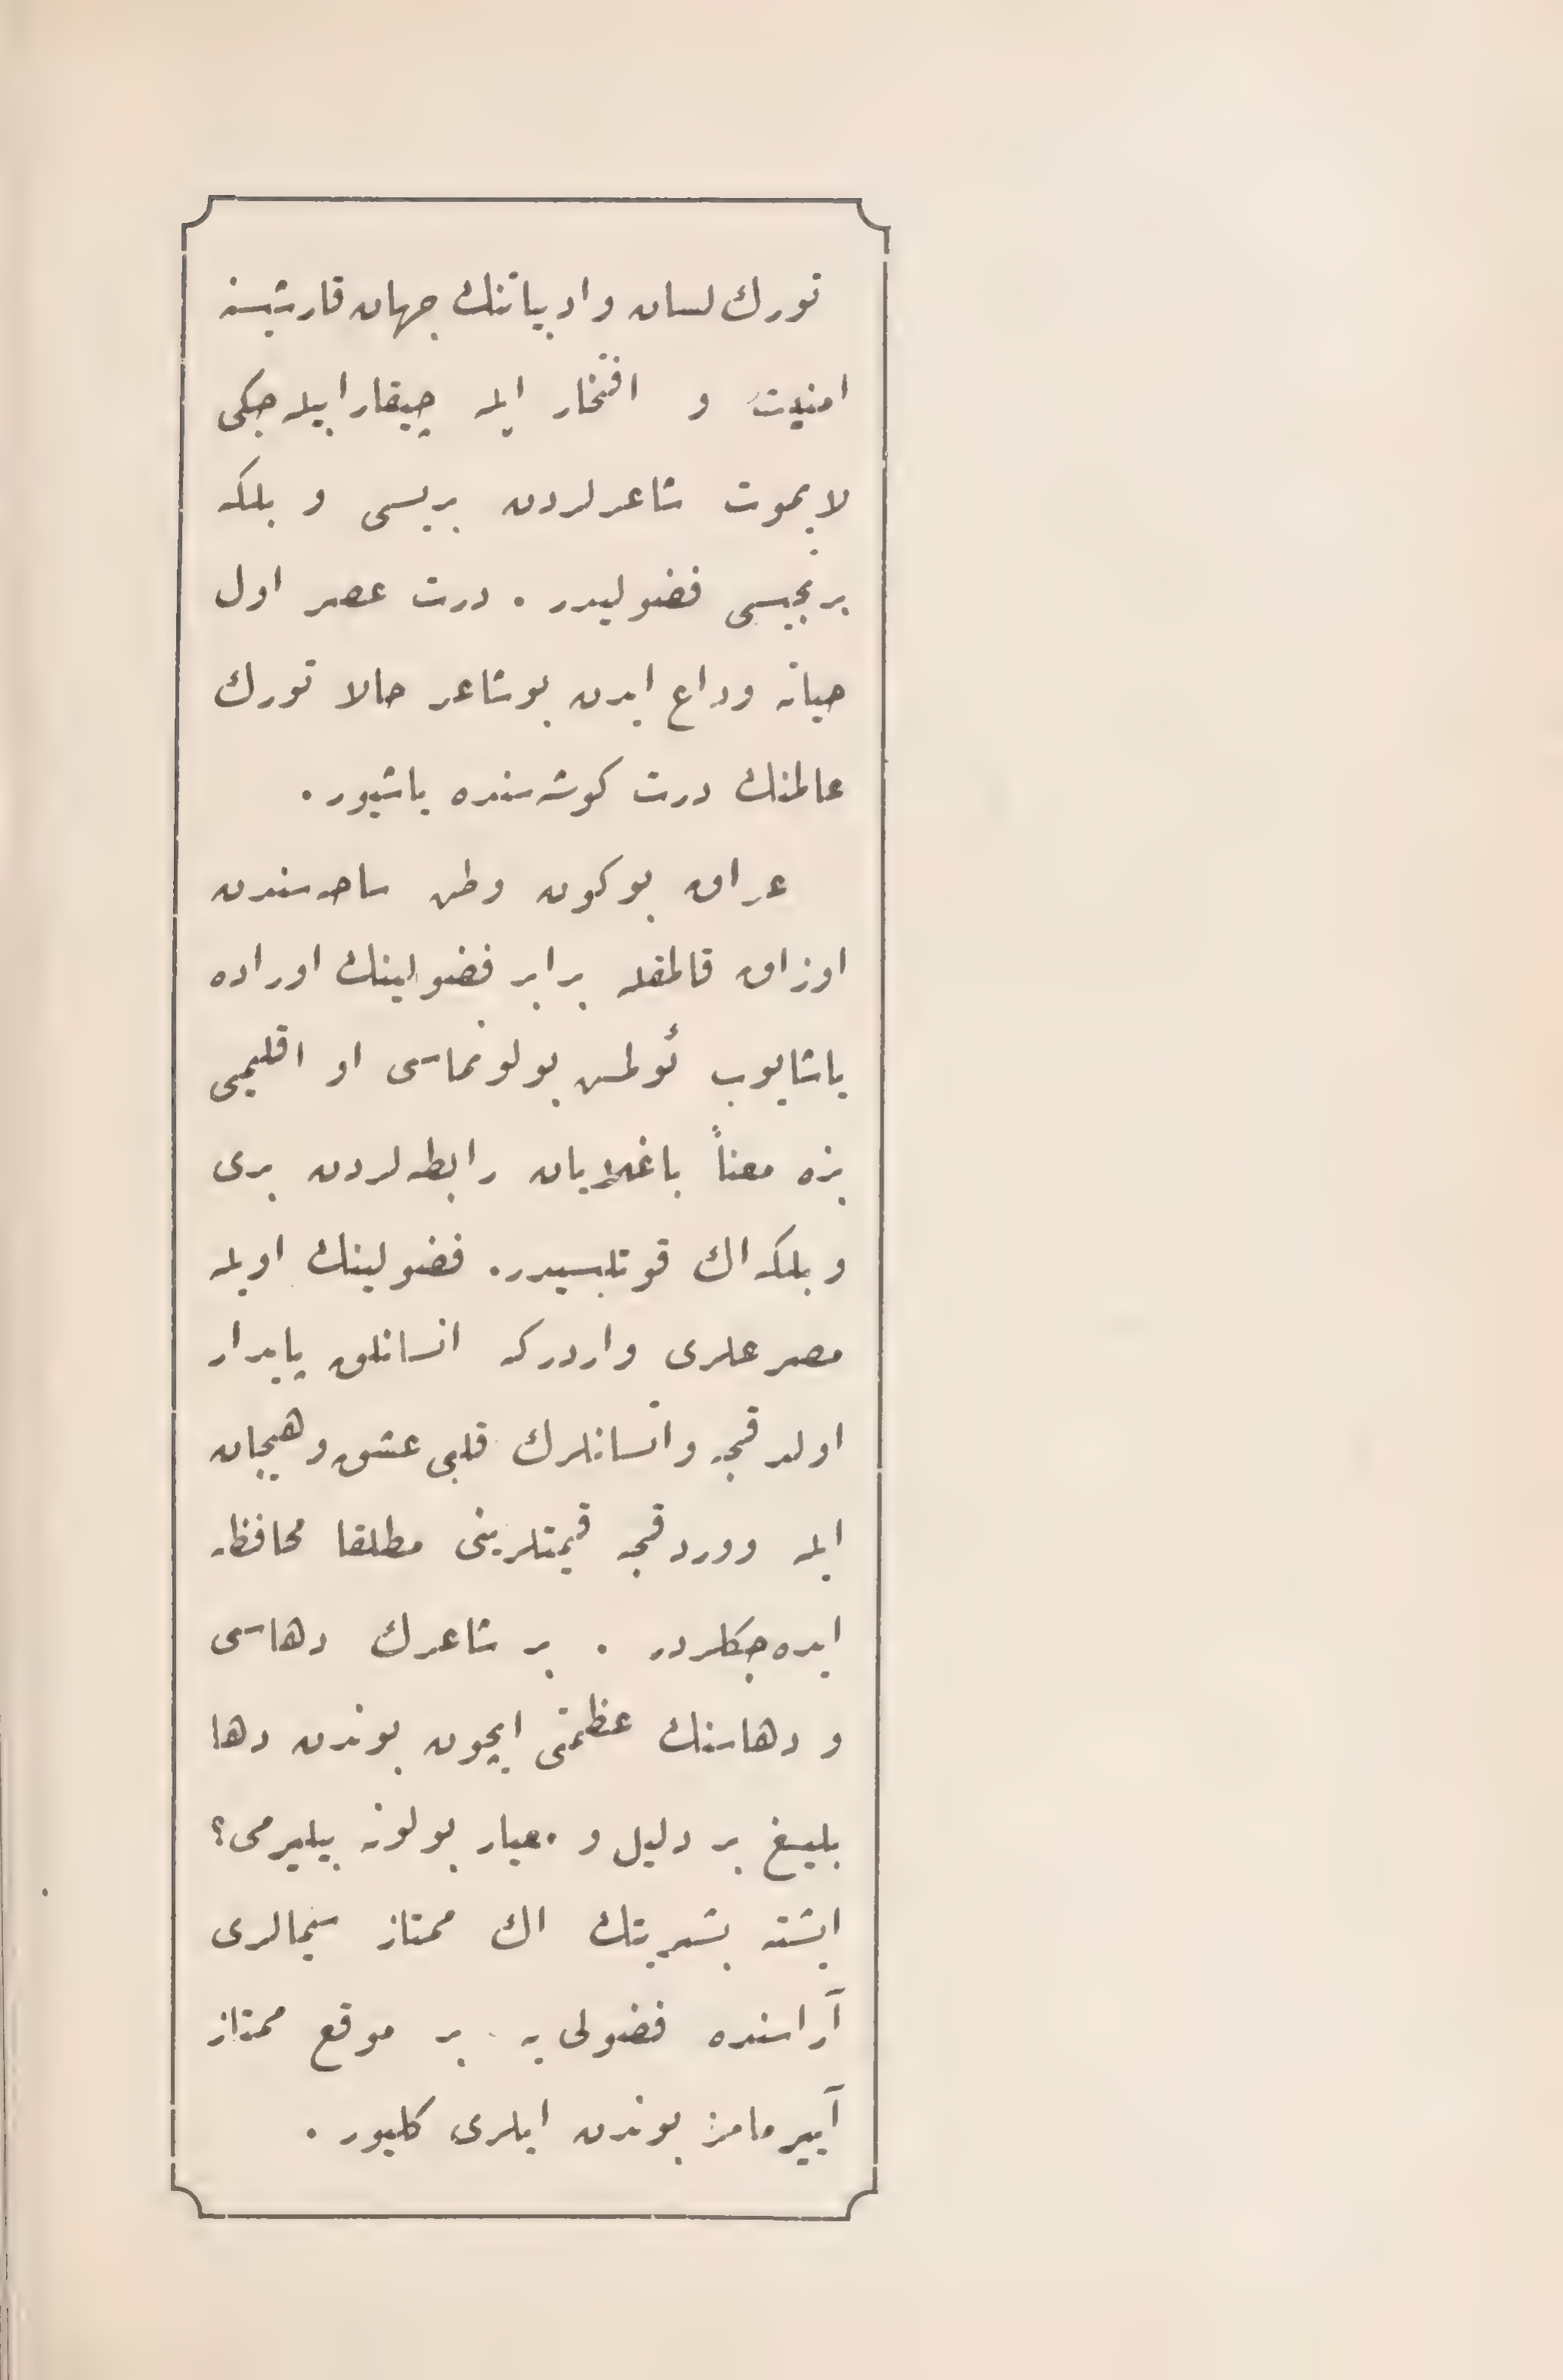 تورك لسان و ادبیاتنك جهان قارشیسنه
امنیت و افتخار ایله چیقارابیله جكی
لایموت شاعرلردن بریسی و بلكه
برنجیسی فضولیدر . درت عصر اول
حیاته وداع ایدن بو شاعر حالا تورك
عالمنك درت كوشه‌سنده یاشیور .
عراق بوكون وطن ساحه‌سندن
اوزاق قالمقله برابر فضولینك اوراده
یاشایوب ئولمش بولونماسی او اقلیمی
بزه معناً باغلایان رابطه‌لردن بری
و بلكه اك قوتلیسیدر. فضولینك اویله
مصرعلری واردركه انسانلق پایدار
اولدقجه وانسانلرك قلبی عشق وهیجان
ایله ووردقجه قیمتلرینی مطلقا محافظه
ایده‌جكلردر . بر شاعرك دهاسی
و دهاسنك عظمتی ایچون بوندن دها
بلیغ بر دلیل و معیار بولونه بیلیرمی؟
ایشته بشریتك اك ممتاز سیمالری
آراسنده فضولی یه بر موقع ممتاز
آییرمامز بوندن ایلری كلیور .